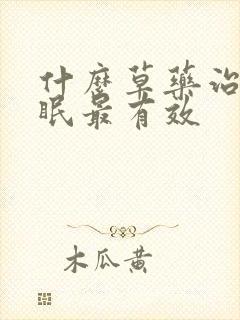 什麼草藥治
眠最有效
木瓜黄